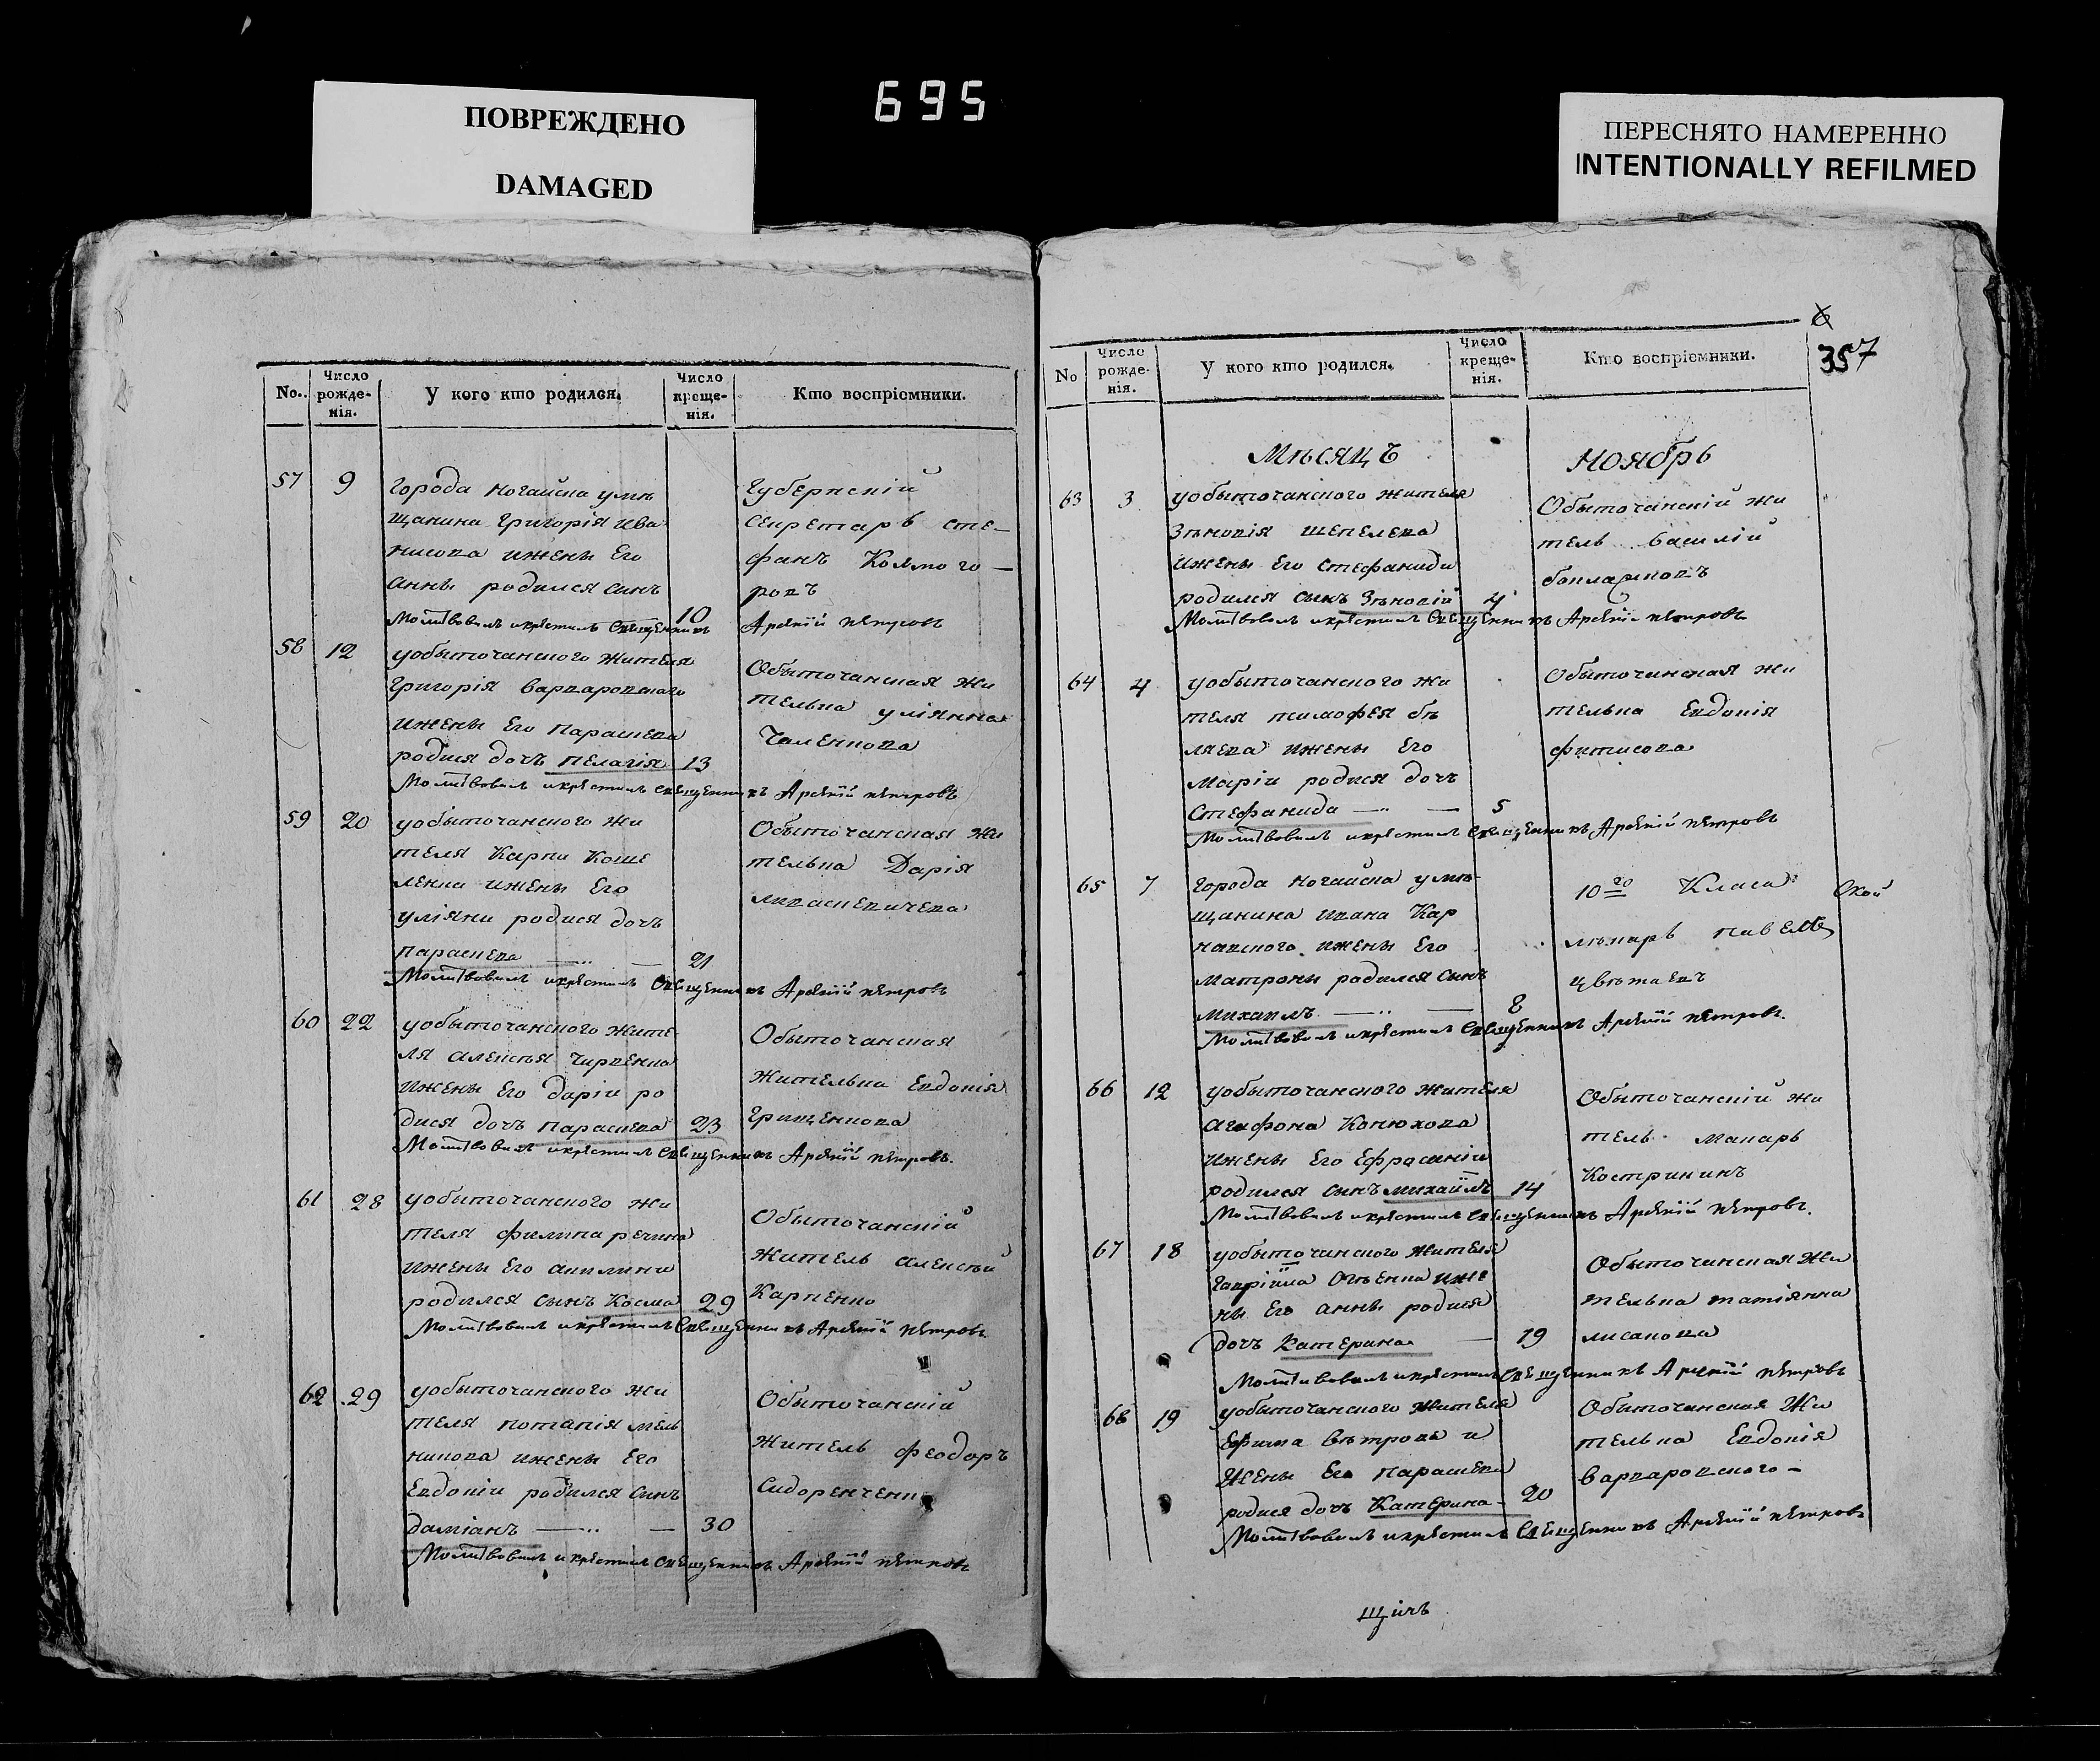 695
ПОВРЕЖДЕНО
DAMAGED
ПЕРЕСНЯТО НАМЕРЕННО
INTENTIONALLY REFILMED
No.. Число рожде-нія. У кого кто родился. Число креще-нія. Кто воспріємники.
57 9 города Ногайска умѣ
щанина Григорія Ива
нисова ижены Его
Анны родился сынъ
10
Губернскій
Секретарь Сте-
фанъ Колмого-
ровъ
Молитвовалъ икрестилъ Священникъ Арсеній Петровъ
58 12 уобыточанского жителя
Григорія Варваровского
ижены Его Параскева
родися дочъ Пелагія 13
Обыточанская жи
телька Уліянна
Чаленкова
Молитвовалъ икрестилъ Священникъ Арсеній Петровъ
59 20 уобыточанского жи
теля Карпа Коше
ленка ижены Его
Уліяни родися дочъ
Параскева — 21
Обыточанская жи
телька Дарія
Молитвовалъ икрестилъ Священникъ Арсеній Петровъ
60 22 уобыточанского жите
ля Алексѣя Чирвенка
ижены Его Даріи ро
дися дочъ Параскева 23
Обыточанская
жителька Евдокія
Грищенкова
Молитвовалъ икрестилъ Священникъ Арсеній Петровъ.
61 28 уобыточанского жи
теля Филипа Речина
ижены Его Акилини
родился сынъ Косма 29
Обыточанскій
житель Алексѣй
Карпенко
Молитвовалъ икрестилъ Священникъ Арсеній Петровъ
62 29 уобыточанского жи
теля Потапія Мель
никова ижены Его
Евдокіи родился сынъ
Даміанъ — — 30
Обыточанскій
житель Феодоръ
Молитвовалъ икрестилъ Священникъ Арсеній Петровъ
357
No Число рожде-нія. У кого кто родился. Число креще-нія. Кто воспріємники.
Мѣсяцъ Ноябрь
63 3 уобыточанского жителя
Зѣновія Шепелева
ижены Его Стефаниди
родился сынъ Зѣновій 4
Обыточанскій жи
тель Василій
Молитвовалъ икрестилъ Священникъ Арсеній Петровъ
64 4 уобыточанского жи
теля Тимофея Бѣ
ляева ижены Его
Маріи родися дочъ
Стефанида — — 5
Обыточанская жи
телька Евдокія
Фитисова
Молитвовалъ икрестилъ Священникъ Арсеній Петровъ
65 7 города Ногайска умѣ-
щанина Ивана Кар
навского ижены Его
Матроны родился сынъ
Михаилъ — — 8
10го Класа
лѣкарь Павелъ
Цвѣтаевъ
Молитвовалъ икрестилъ Священникъ Арсеній Петровъ.
66 12 уобыточанского жителя
Агафона Конюхова
ижены Его Ефросиніи
родился сынъ Михаіилъ 14
Обыточанскій жи
тель Макарь
Кострикинъ
Молитвовалъ икрестилъ Священникъ Арсеній Петровъ.
67 18 уобыточанского жителя
Гавріила иже
ны Его Анны родися
дочъ Катерина — 19
Обыточанская жи
телька Татіянна
Лисакова
Молитвовалъ икрестилъ Священникъ Арсеній Петровъ
68 19 уобыточанского жителя
Ефима Вѣтрова и
жены Его Параскева
родися дочъ Катерина- 20
Обыточанская жи
телька Евдокія
Варваровского-
Молитвовалъ икрестилъ Священникъ Арсеній Петровъ